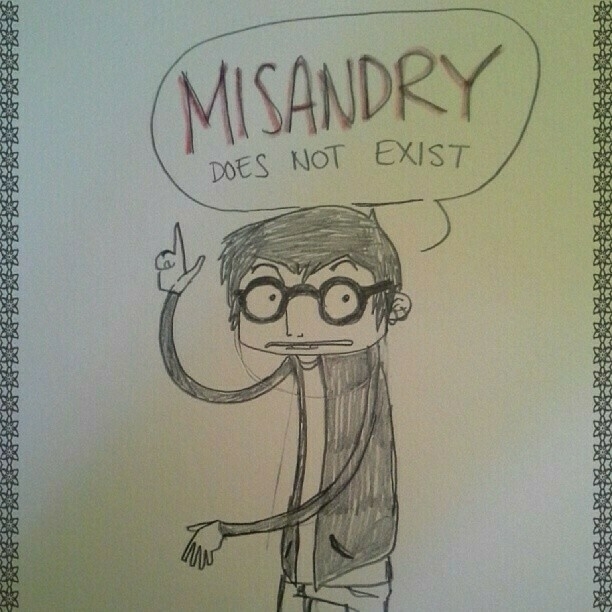 MISANDRY
DOES NOT EXIST